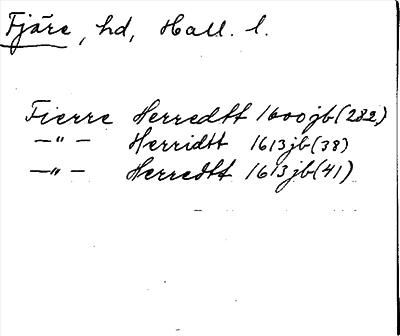 Fjäre, hd, Hall. l.
Fierre Herredtt 1600jb(282)
—"— Herridtt 1613jb(38)
—"— Herredtt 1613jb(41)